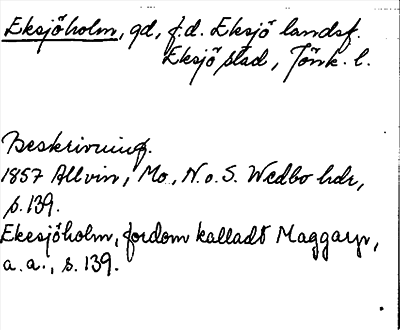 Eksjöholm, gd, f.d. Eksjö landsf.
Eksjö stad, Jönk. l.
Beskrivning.
1857 Allvin, Mo., N. o. S. Wedbo hdr,
s. 139.
Ekesjöholm, fordom kalladt Maggaryr,
a. a., s. 139.